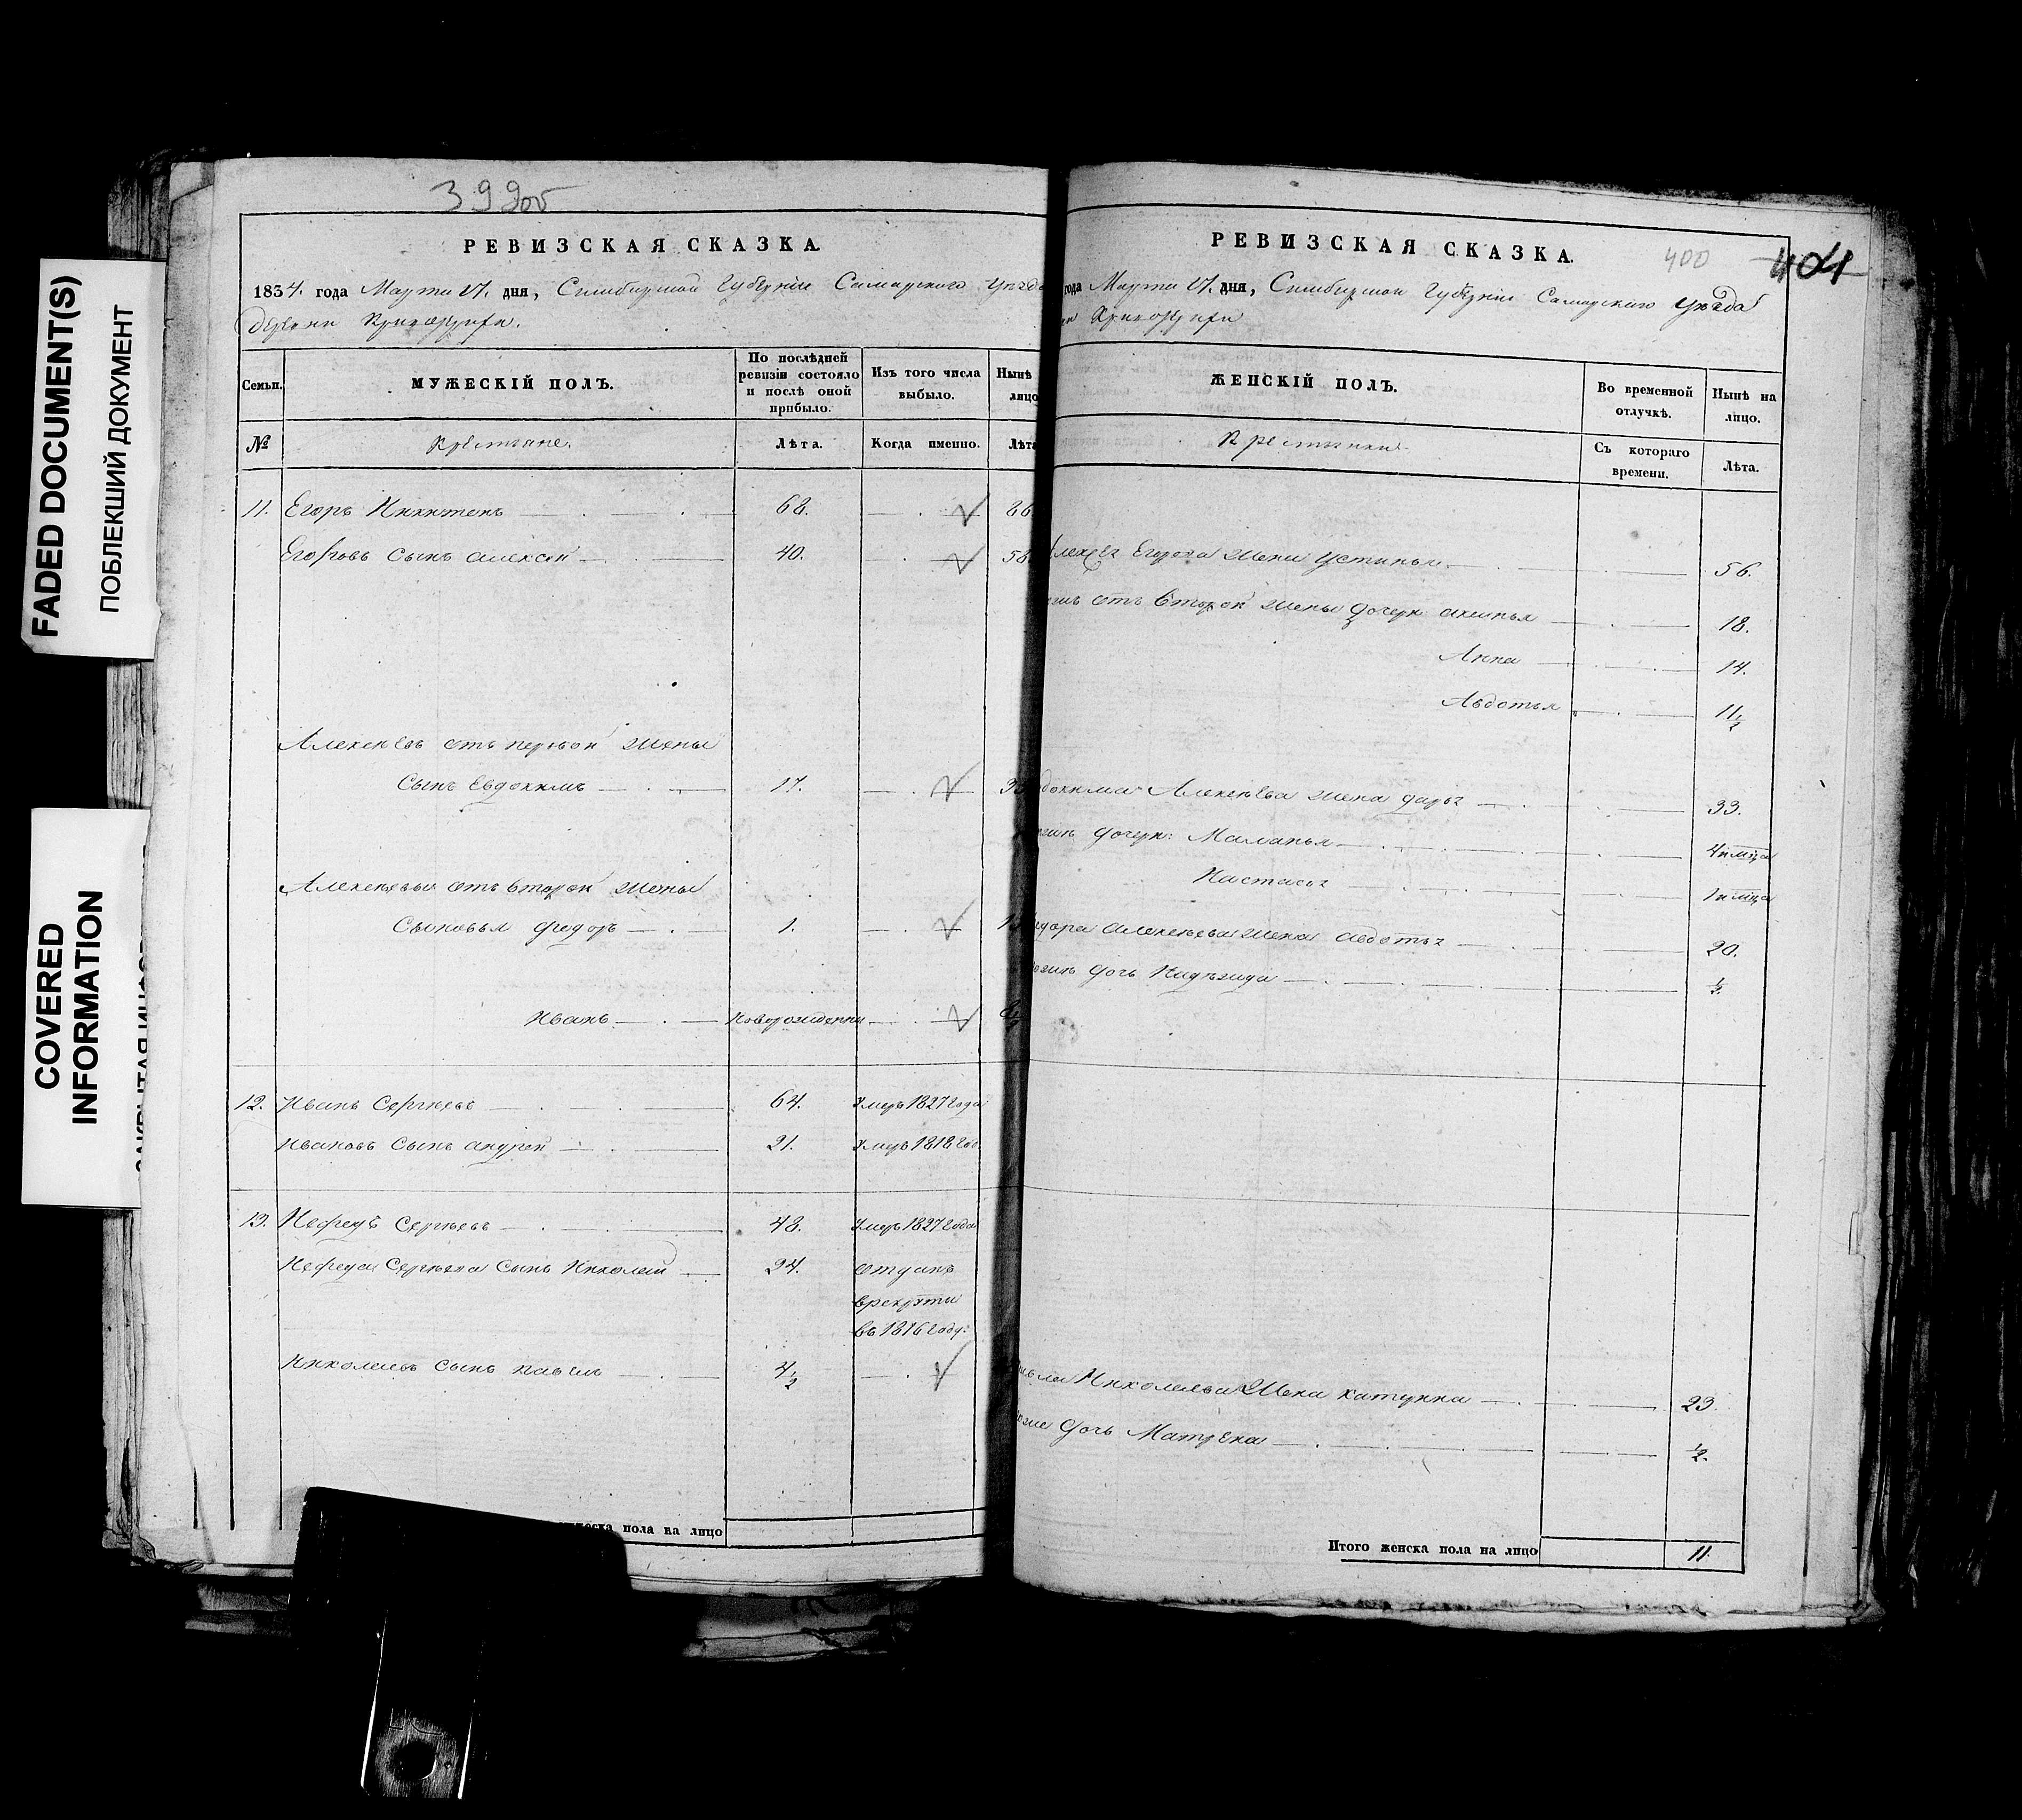 FADED DOCUMENT(S)
ПОБЛЕКШИЙ ДОКУМЕНТ
COVERED INFORMATION
399об
РЕВИЗСКАЯ СКАЗКА.
1834. года Марта 17. дня, Симбирской Губернiи Самарского уезда
деревни
Семьи.
МУЖЕСКІЙ ПОЛЪ.
По послѣдней ревизіи состояло и послѣ оной прибыло.
Изъ того числа выбыло.
Нынѣ лицо
№
Крестьяне.
Лѣта.
Когда именно.
Лѣта
11. Егоръ Никитенъ 68. 86
Егоровъ сынъ Алексей 40. 58
Алексѣевъ отъ первой жены
Сынъ Евдокимъ 17.
Алексѣевы отъ второй жены
Сыновья Федоръ 1.
Иванъ Новорожденны
12. Иванъ Сергѣевъ 64. Умеръ 1827 года
Ивановъ Сынъ Андрей 21. Умеръ 1818 год
13. Нефедъ Сергѣевъ 48. Умеръ 1827 года
Нефеда Сергѣева Сынъ Николай 24. отданъ
врекруты
въ 1816 году
Николаевъ сынъ Павелъ 4 1/2
пола на лицо
РЕВИЗСКАЯ СКАЗКА.
400
401
года Марта 17. дня, Симбирской Губернiи Самарского уезда
ЖЕНСКІЙ ПОЛЪ.
Во временной отлучкѣ.
Нынѣ на лицо.
Крестьянки
Съ котораго времени.
Лѣта.
Егорова жена Устинья 56.
отъ второй жены дочери Аксинья 18.
Анна 14.
Авдотья 11 1/2
Алексѣева жена Дарья 33.
дочери: Маланья 4
Настасья 1
Алексѣева жена Авдотья 20.
дочь Надежда 1/2.
Николаева Жена Катерина 23
дочь Матрена 1/2.
Итого женска пола на лицо 11.